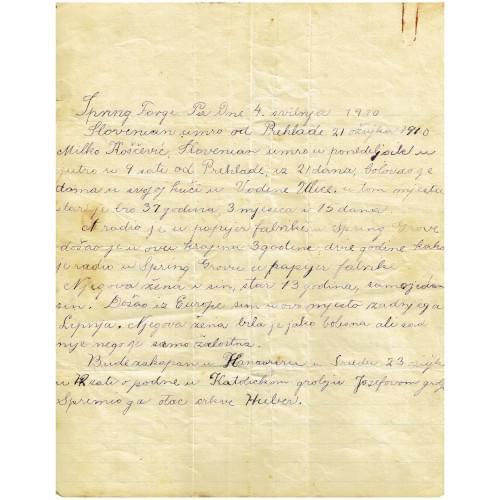 Spring Forge Pa Dne 4. svibnja 1910
Slovenian umro od Prehlade 21 ožujka 1910
Milko Koščević, Slovenian umro u ponedeljak u
jutro u 9 sati od Prehlade, iz 21 dana, bolovao je
doma u svojoj kući u Vodene Ulice, u tom mjestu
star je bio 37 godina, 3 mjeseca i 15 dana.
A radio je u papyer fabriki u Spring Grove
došao je u ovu krajinu 3 godine, dve godine kako
je radio u Spring Grovu u papyer fabriki
Njegova žena i sin, star 13 godina, samo jedan
sin. Došao iz Europe sin u ovo mjesto zadnjega
Lipnja. Njegova žena bila je jako bolesna ale sad
nije nego je samo žalostna.
Bude zakapan u Hanoviru u Sredu 23 ožujk
u 12 sati o podne u Katoličkom groblju Josefovom grob
Spremio ga otac crkve Huber.